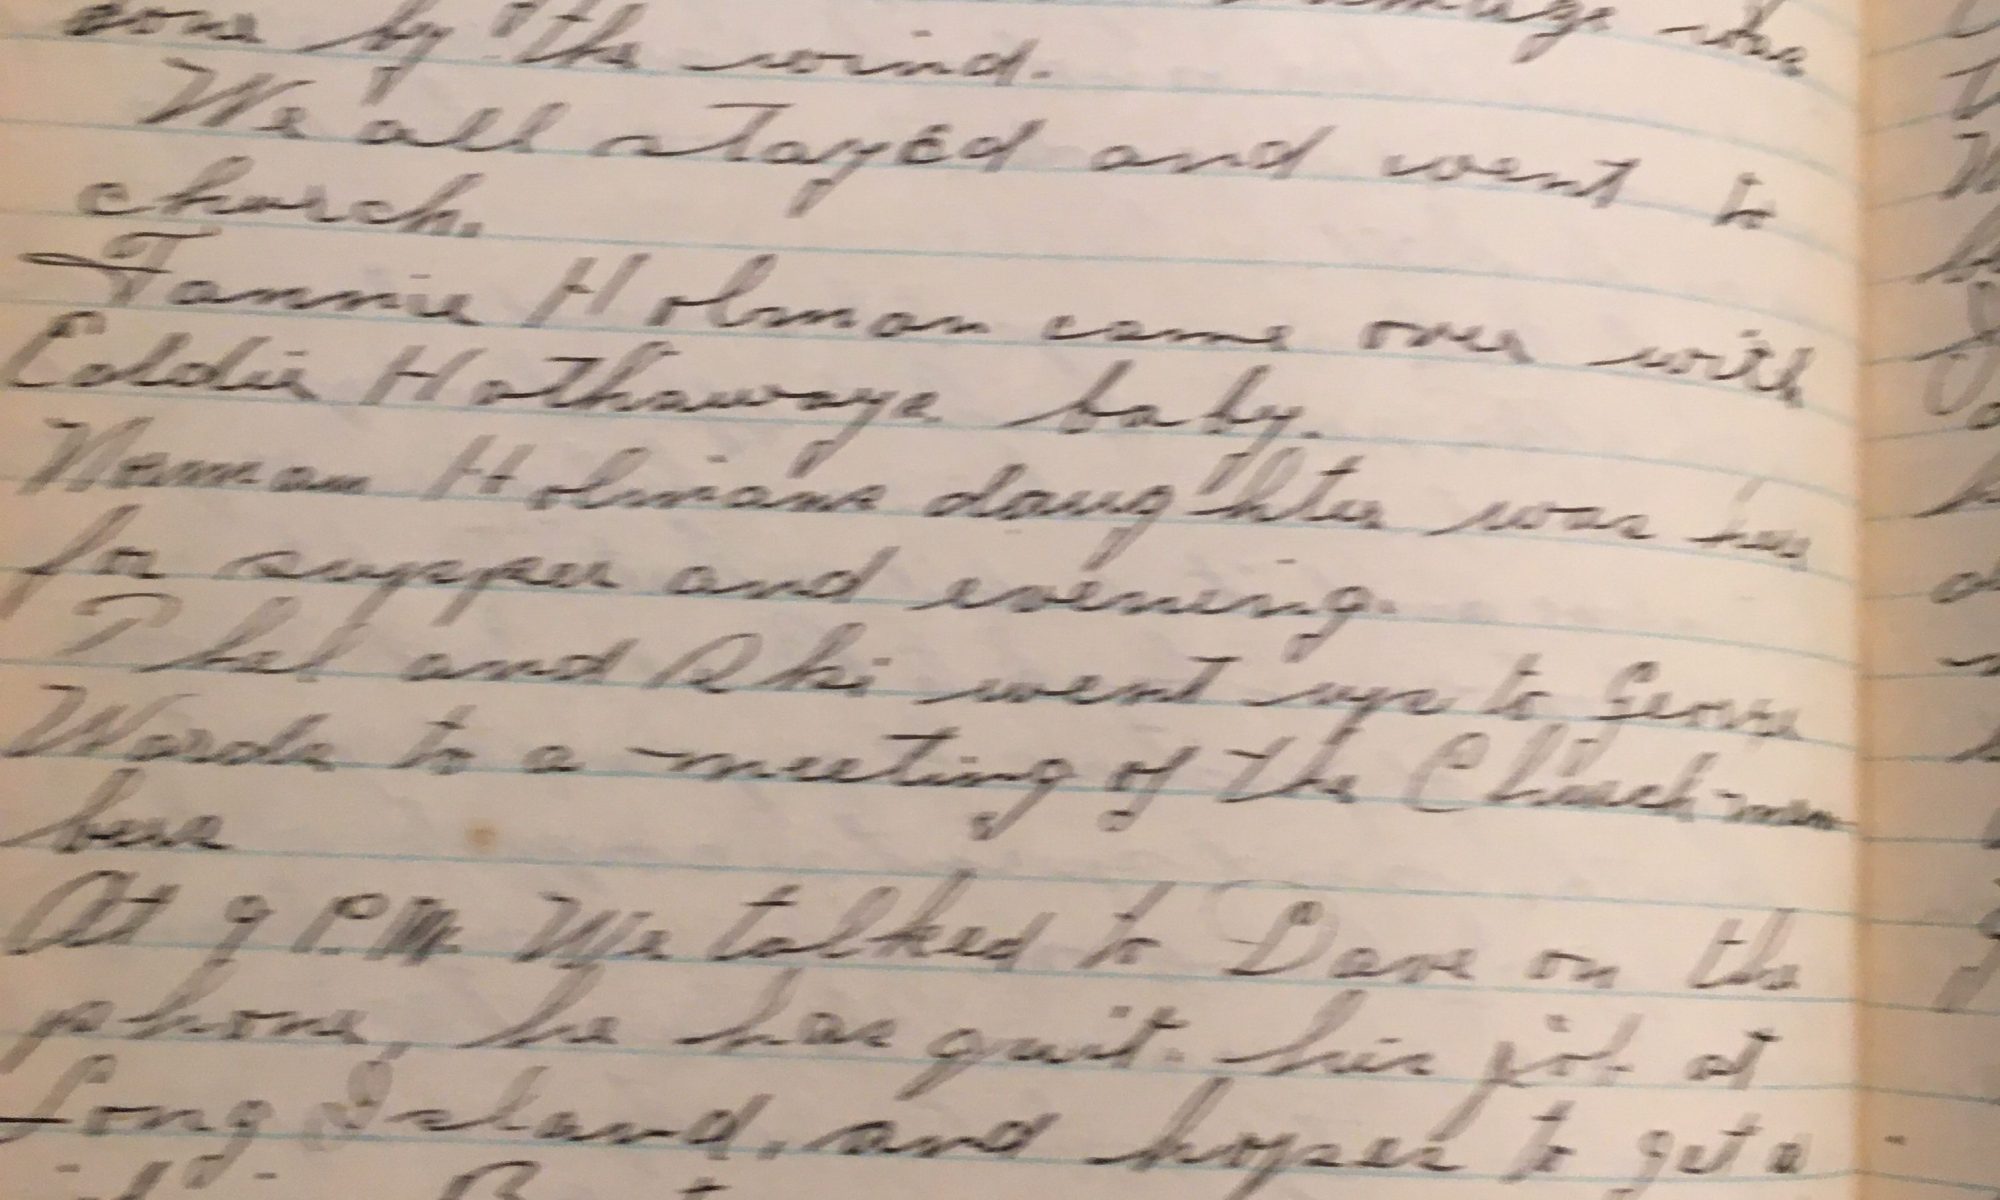 done by the wind.
We all stayed and went to
church.
Fannie Holman came over with
Eddie Hathaways baby.
Norman Holmans daughter was here
for supper and evening.
Phel and went up to George
Wards to a meeting of the Church mem
bers
At 9 P.M. We talked to Dave on the
phone, he has quit his job at
Long Island, and hopes to get a